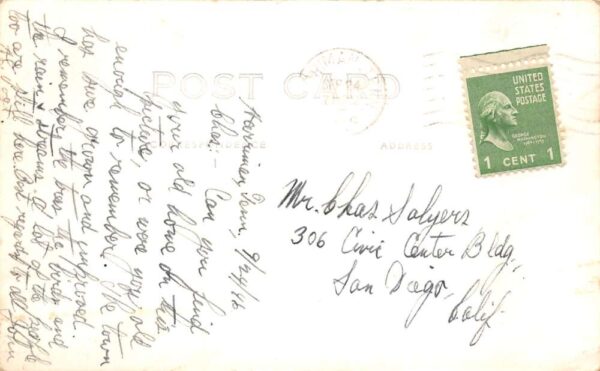 POST CARD
CORRESPONDENCE
ADDRESS
UNITED
STATES
POSTAGE
GEORGE
WASHINGTON
1 CENT 1
Mr. Chas Salyers
306 Civic Center Bldg.,
San Diego,
Calif.
Harriman, Tenn., 9/24/46
Chas:- Can you find
your old home on this
picture, or were you old
enough to remember. The town
has sure grown and improved.
I remember the bus, the
the rain & A lot of the people
are still here. Best regards to all